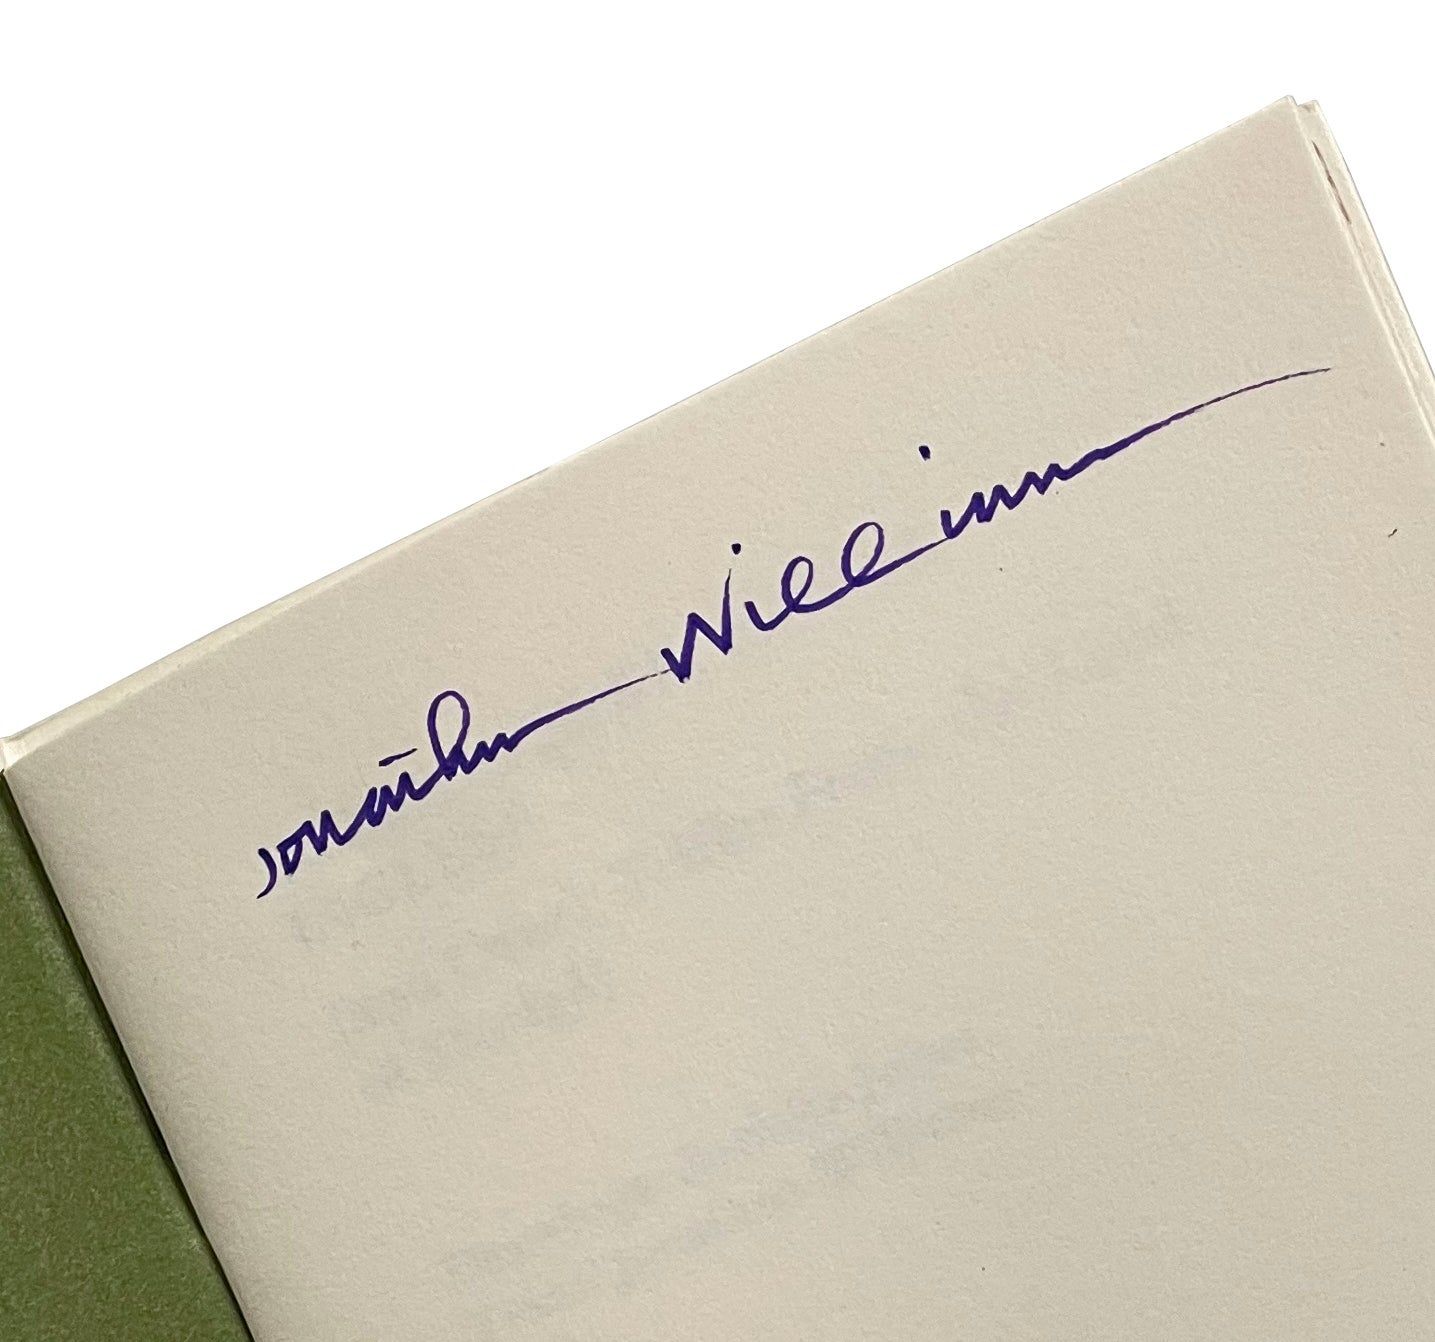 Jonathan Williams